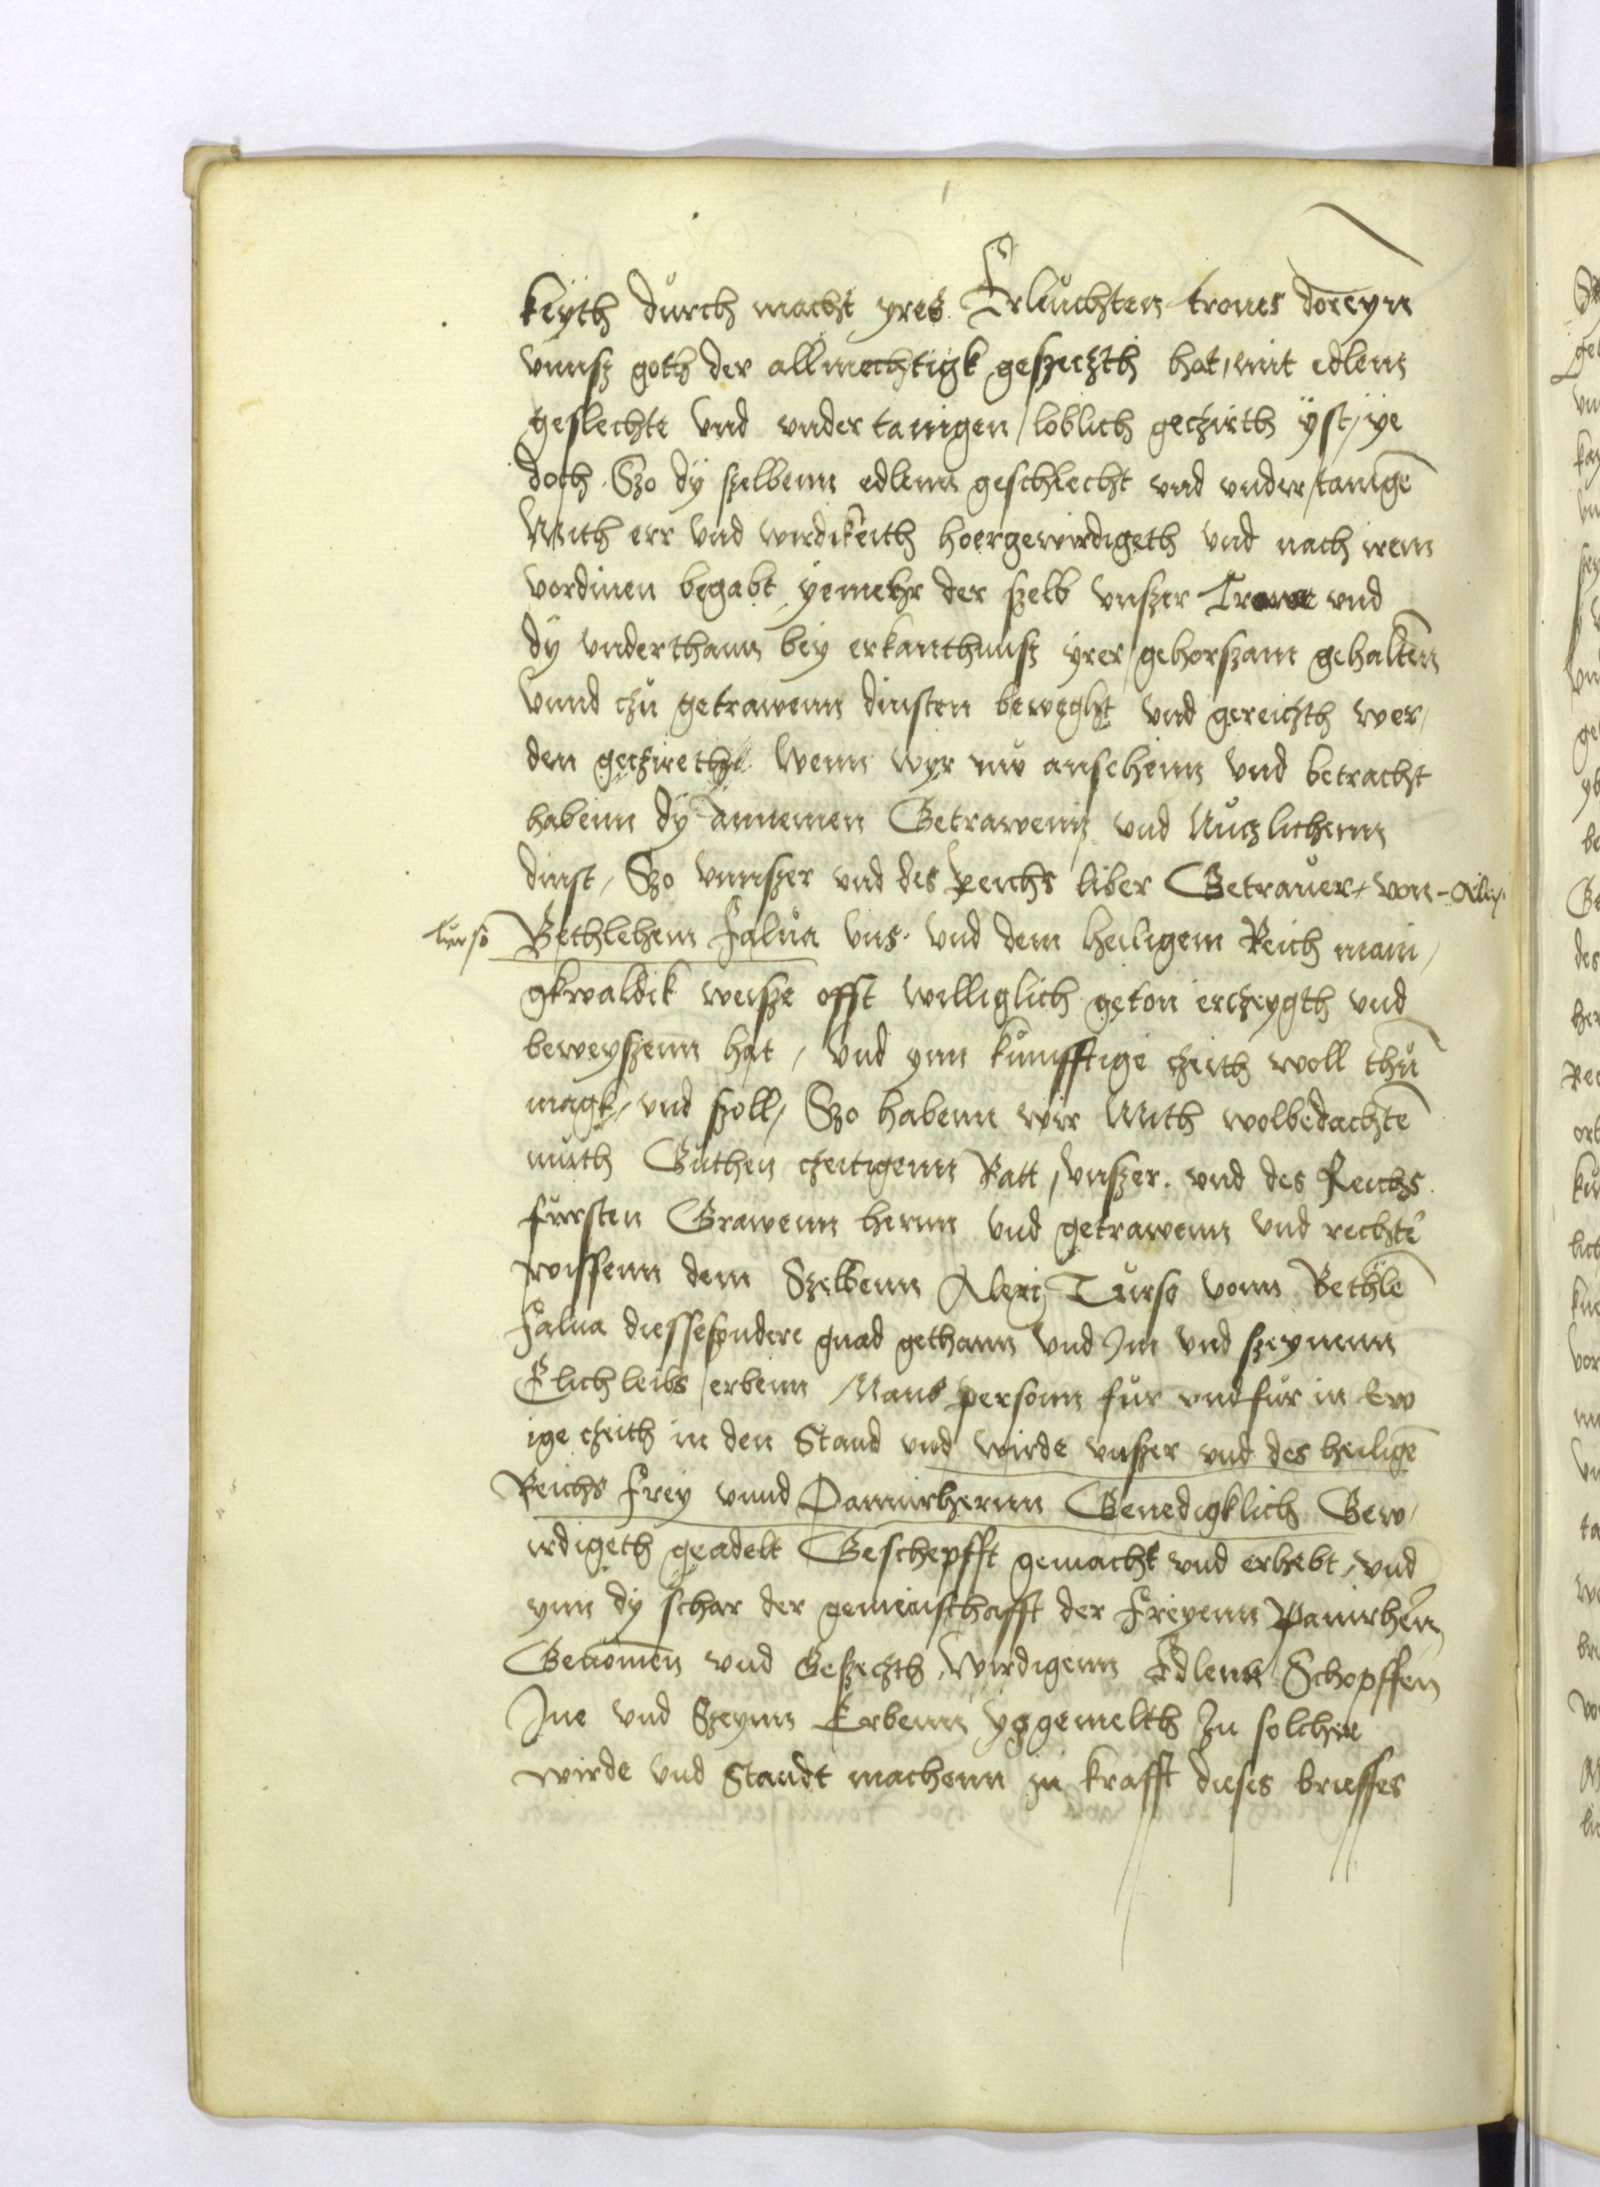 keyth durch macht yres Erleuchten trones doreyn
vnnsz goth der allmechtigk geszeczth hat, mit edlenn
geslechte vnd vndertanigen loblich geczirth yst, ye
doch Szo dy szelbenn edlenn geschlecht vnd vndertanigē
Mith err vnd wirdikeith hoergewirdigeth vnd nach irem
vordinen begabt yemehr der szelb vnszer Trone vnd
dy vnderthann bey erkanthnusz yrer gehorszam gehalten
vnnd czu getrawenn dinsten beweght vnd gereiczth wer,
den geczireth Wenn wyr nw ansehenn vnd betracht
habenn dy Annemen Getrawenn vnd Nuczlichenn
dinst, Szo vnnszer vnd des Reichs liber Getrauer, von - Alexi
turso Bethlehem Falua vns vnd dem heiligem Reich mani,
gkwaldik weisze offt williglich geton erczeygth vnd
beweyszenn hat, vnd ynn kunfftige czeith woll thū
magk, vnd szoll, Szo habenn wir Mith wolbedachtē
muth Guthen czeitigenn Ratt, vnszer vnd des Reichs
fursten Grawenn hernn vnd getrawenn vnd rechtē
wissenn dem Szelbenn Alexi Turso vonn Bethlē
Falua diessesondere gnad gethann vnd Im vnd szeynenn
Elich leibs erbenn Mans personn fur vnd fur in Ew
ige czeith in den Stand vnd wirde vnszer vnd des heiligē
Reichs Frey vnnd Pannirhernn Genedigklich Gew,
irdigeth geadelt Geschepfft gemacht vnd erhebt, vnd
ynn dy schar der gemeinschafft der Freyenn Panirhern
Genomen vnd Geszeczth, Wirdigenn Edlenn Schopffen
Ine vnd Szeynn Erbenn yggemelth In solche
wirde vnd Standt machenn in krafft dieses brieffes